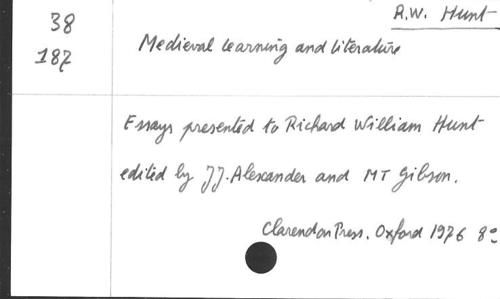 R.W. Hunt
38
187
Medieval learning and literature
Essays presented to Richard William Hunt
edited by JJ. Alexander and MT Gibson.
Clarendon Press. Oxford 1976 8°